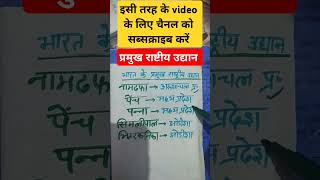 इसी तरह के video
के लिए चैनल को
सब्सक्राइब करें
प्रमुख राष्टीय उद्यान
भारत के प्रमुख राष्ट्रीय उद्यान
नामदफा → अरुणाचल प्र॰
पेंच → मध्य प्रदेश
पन्ना → मध्य प्रदेश
सिमलीपाल → ओडीशा
भितरकनिका → ओडीशा